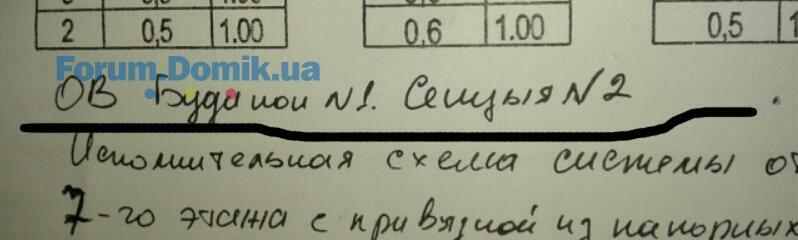 2 0,5 1.00 0.6 1.00 0,5 1
Forum.Domik.ua
ОВ Будинои N1. Секцыя N2
Исполнительная схема системы от
7-го этажа с привязкой из напорных